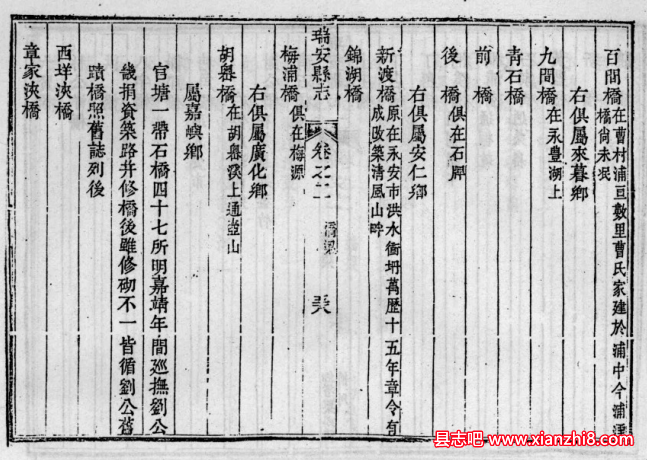 百間橋在曹村浦亘數里曹氏家建於浦中今浦淫橋尚未泯
右俱屬來暮鄉
九間橋在永豐湖上
青石橋
前橋
後橋俱在石岸
右俱屬安仁鄉
新渡橋原在永安市洪水衝坍萬歷十五年章令有成改築清風山畔
錦湖橋
瑞安縣志 卷之二 橋梁
梅浦橋俱在梅源
右俱屬廣化鄉
胡嶴橋在胡嶴溪上通壺山
屬嘉嶼鄉
官塘一帶石橋四十七所明嘉靖年間巡撫劉公
畿捐資築路并修橋後雖修砌不一皆循劉公舊
蹟橋照舊誌列後
西垟浹橋
章家浹橋
县志吧@www.xianzhi8.com